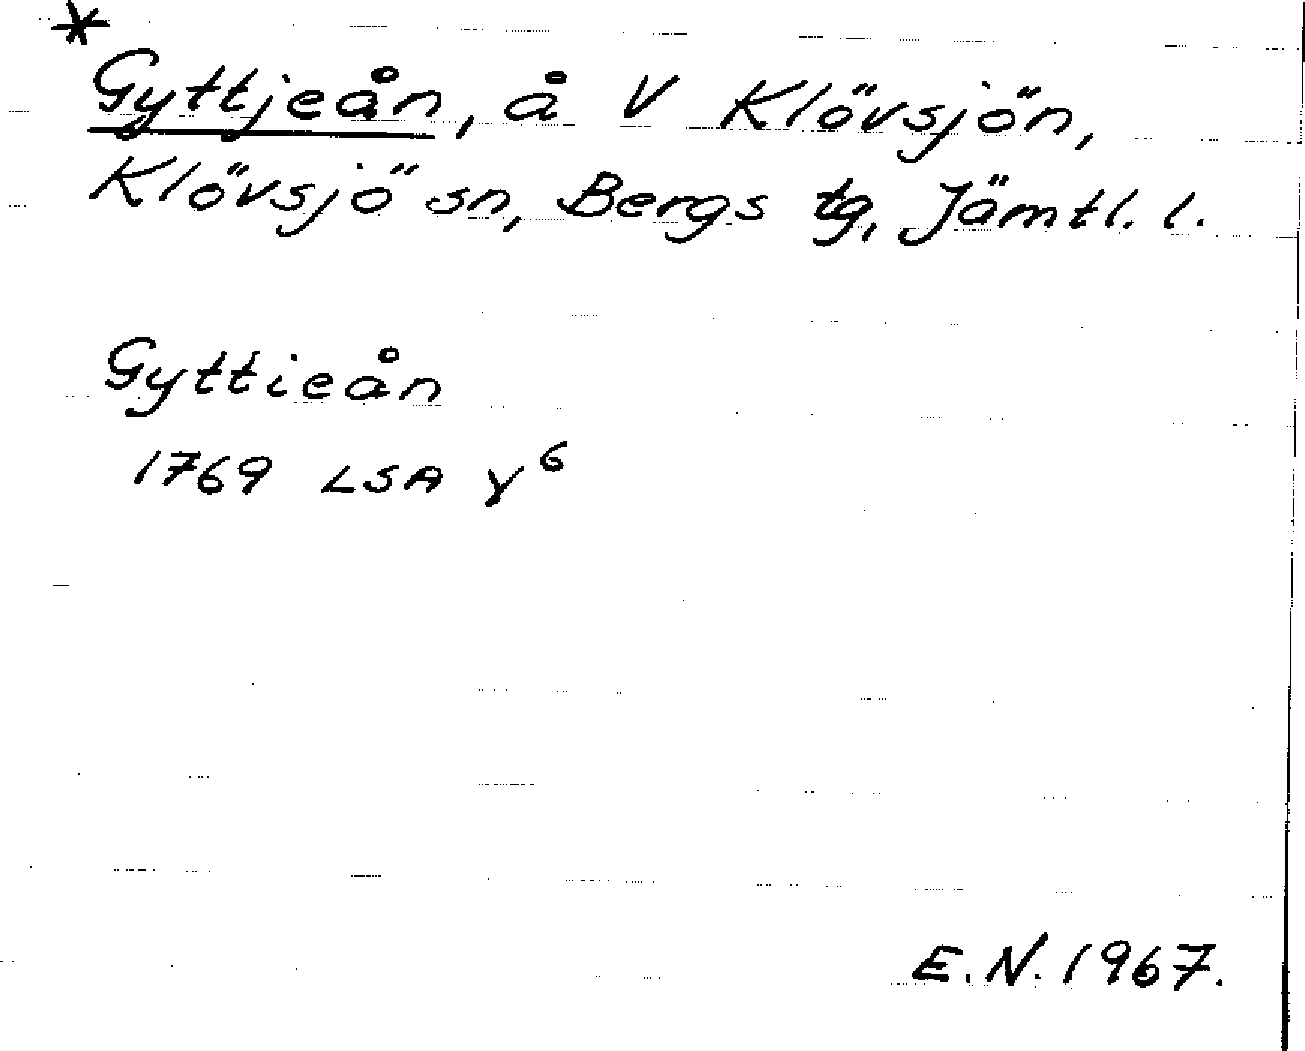 *
Gyttjeån, å V Klövsjön,
Klövsjö sn, Bergs tg, Jämtl. l.
Gyttieån
1769 LSA γ⁶
E.N. 1967.